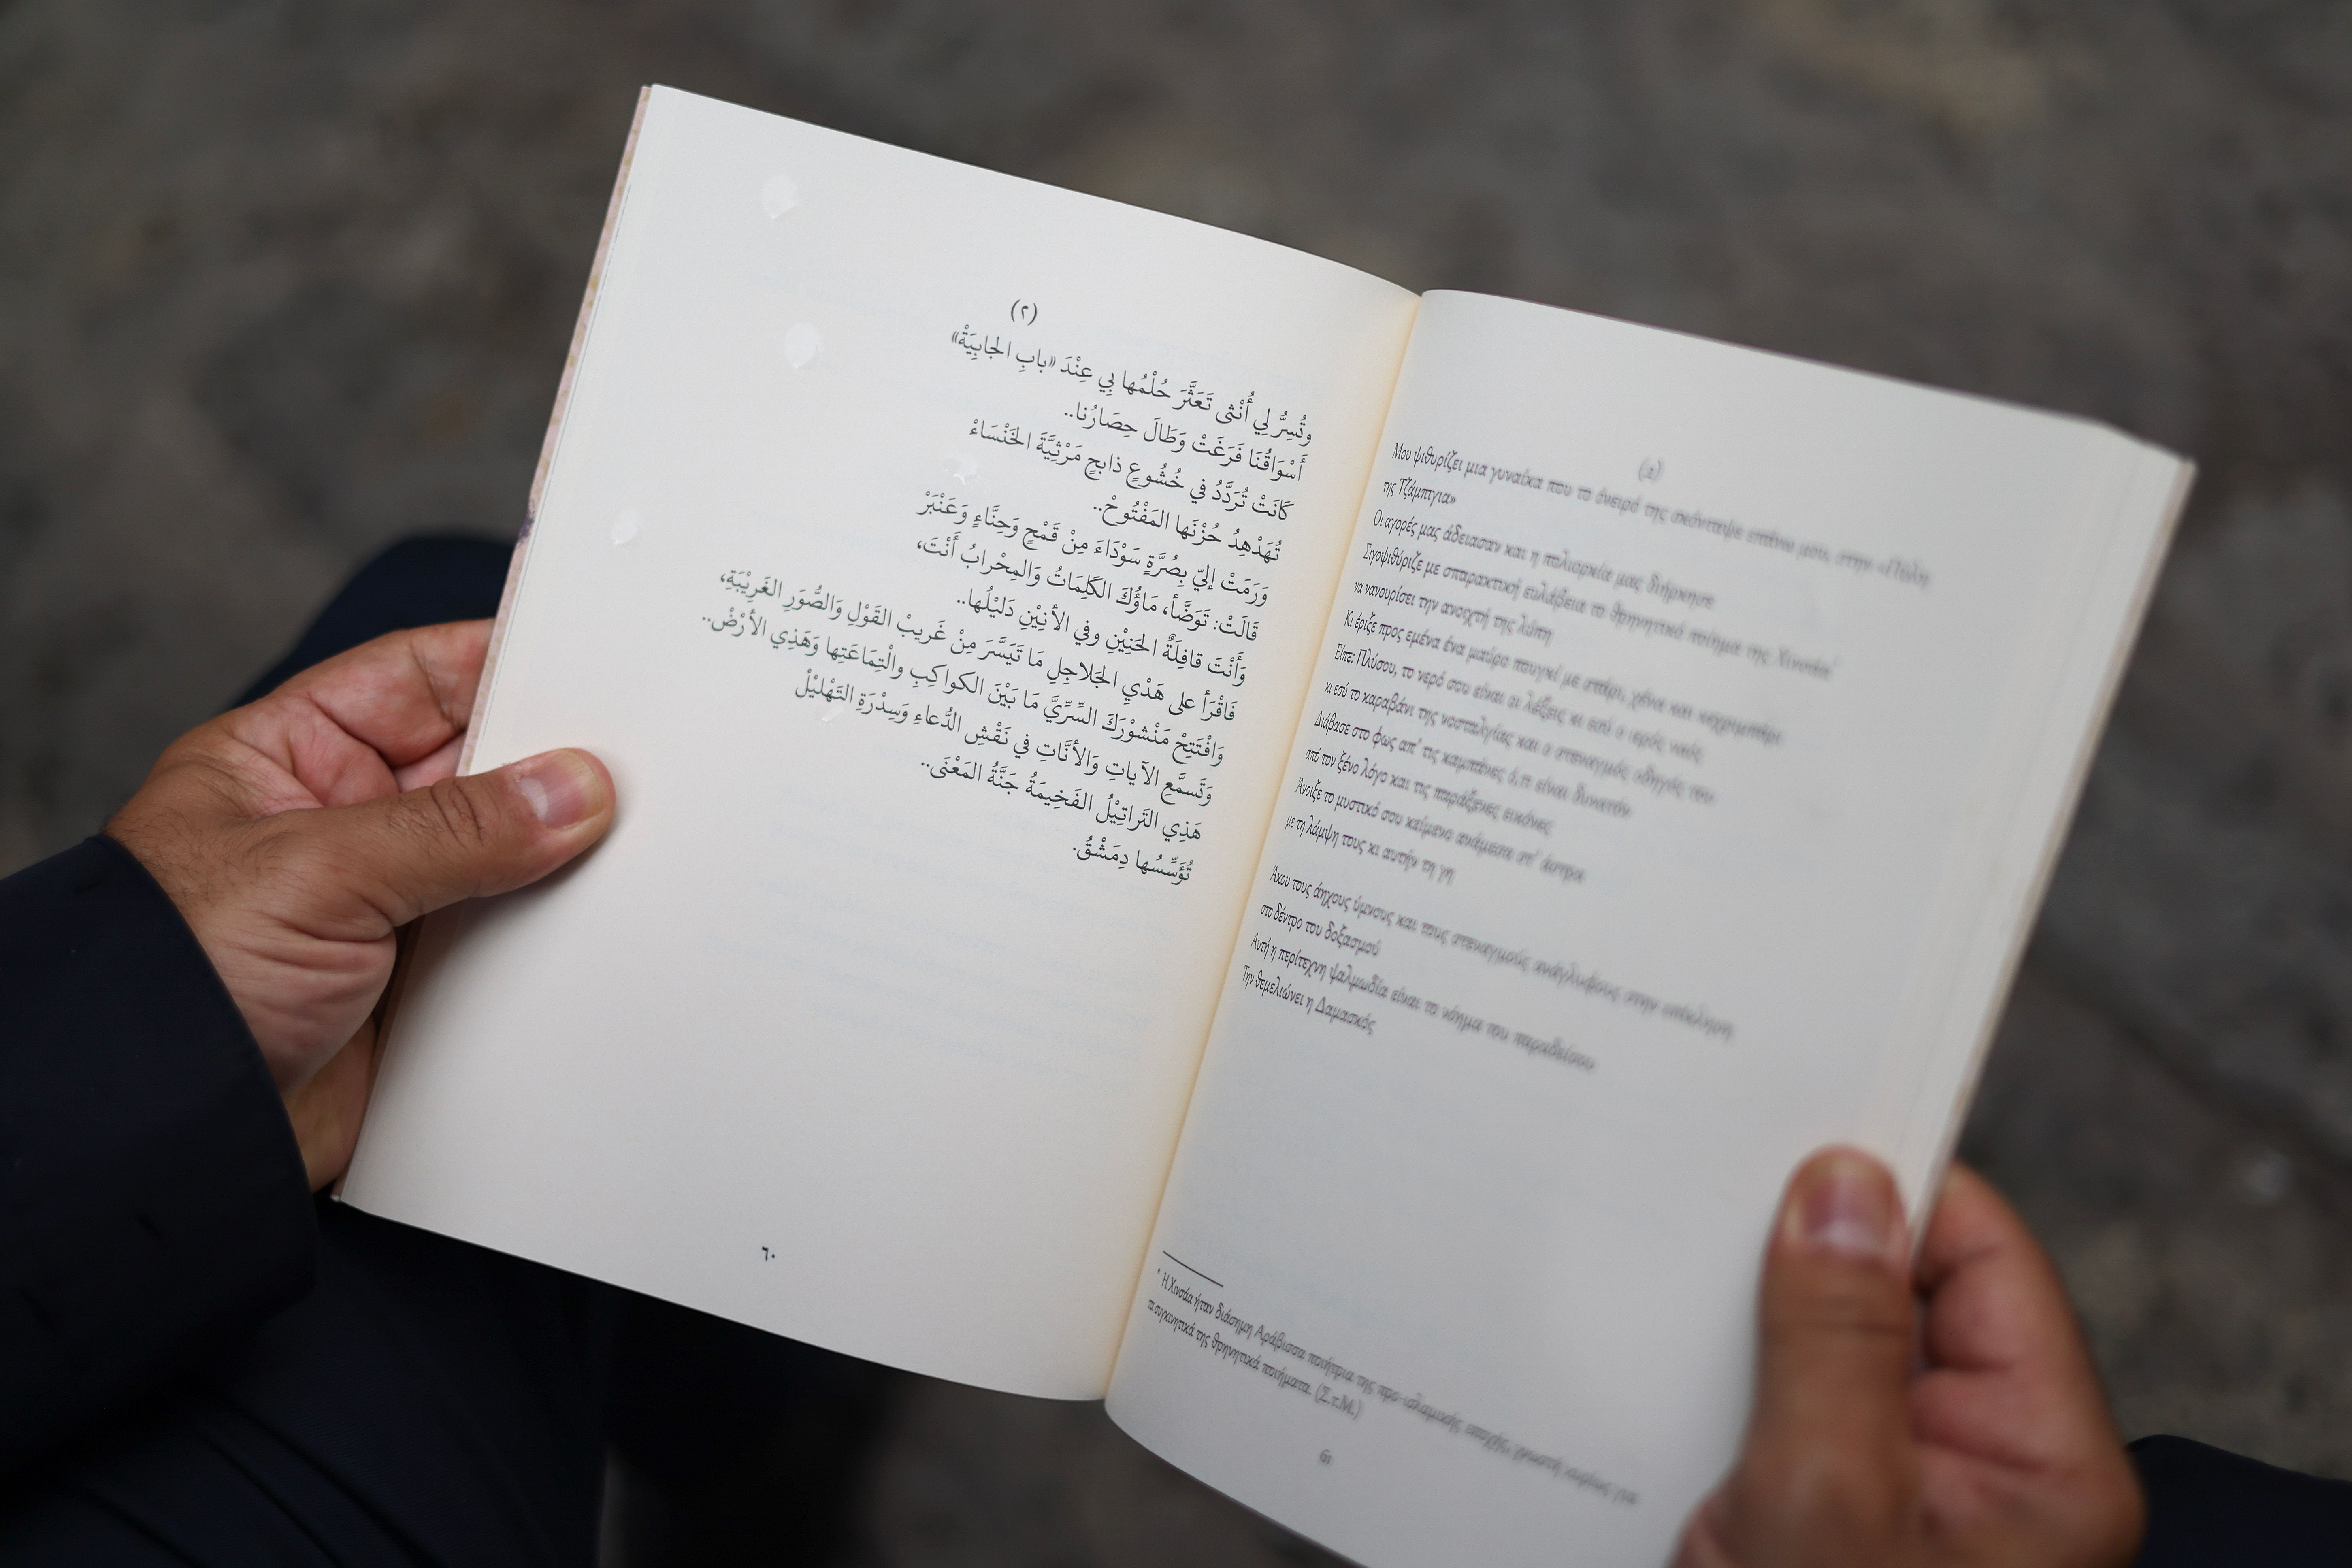 (٢)
وتُسِرُّ لِي أُنْثى تَعَثَّرَ حُلْمُها بِي عِنْدَ «بابِ الجابِيَةْ»
أَسْوَاقُنَا فَرَغَتْ وَطَالَ حِصَارُنا..
كَانَتْ تُرَدِّدُ في خُشُوعٍ ذابحٍ مَرْثِيَّةَ الخَنْسَاءْ
تُهَدْهِدُ حُزْنَها المَفْتُوحْ..
وَرَمَتْ إليّ بِصُرَّةٍ سَوْدَاءَ مِنْ قَمْحٍ وَحِنَّاءٍ وَعَنْبَرْ
قَالَتْ: تَوَضَّأ، مَاؤُكَ الكَلِمَاتُ وَالمِحْرابُ أَنْتَ،
وَأَنْتَ قافِلَةُ الحَنِيْنِ وفي الأَنِيْنِ دَلِيْلُها..
فَاقْرَأ على هَدْيِ الجَلاجِلِ مَا تَيَسَّرَ مِنْ غَريبْ القَوْلِ وَالصُّوَرِ الغَرِيْبَةِ،
وَافْتَتِحْ مَنْشُورَكَ السِّرِّيَّ مَا بَيْنَ الكواكِبِ والْتِمَاعَتِها وَهَذِي الأرْضْ..
وَتَسمَّعِ الآياتِ وَالأنَّاتِ في نَقْشِ الدُّعاءِ وَسِدْرَةِ التَهْلِيْلْ
هَذِي التَراتِيْلُ الفَخِيمَةُ جَنَّةُ المَعْنَى..
تُؤَسِّسُها دِمَشْقُ.
٦٠
(2)
Μου ψιθυρίζει μια γυναίκα που το όνειρό της σκόνταψε επάνω μου, στην «Πύλη
της Τζάμπιγια»
Οι αγορές μας άδειασαν και η πολιορκία μας διήρκησε
Σιγοψιθύριζε με σπαρακτική ευλάβεια το θρηνητικό ποίημα της Χινσάα*
να νανουρίσει την ανοιχτή της λύπη
Κι έριξε προς εμένα ένα μαύρο πουγκί με στάρι, χένα και κεχριμπάρι
Είπε: Πλύσου, το νερό σου είναι οι λέξεις κι εσύ ο ιερός ναός
κι εσύ το καραβάνι της νοσταλγίας και ο στεναγμός οδηγός του
Διάβασε στο φως απ' τις καμπάνες ό,τι είναι δυνατόν
από τον ξένο λόγο και τις παράξενες εικόνες
Άνοιξε το μυστικό σου κείμενο ανάμεσα απ' άστρα
με τη λάμψη τους κι αυτήν τη γη
Άκου τους άηχους ύμνους και τους στεναγμούς ανάγλυφους στην επίκληση
στο δέντρο του δοξασμού
Αυτή η περίτεχνη ψαλμωδία είναι το νόημα του παραδείσου
Την θεμελιώνει η Δαμασκός
* Η Χινσάα ήταν διάσημη Αράβισσα ποιήτρια της προ-ισλαμικής
συγκινητικά της θρηνητικά ποιήματα. (Σ.τ.Μ.)
61